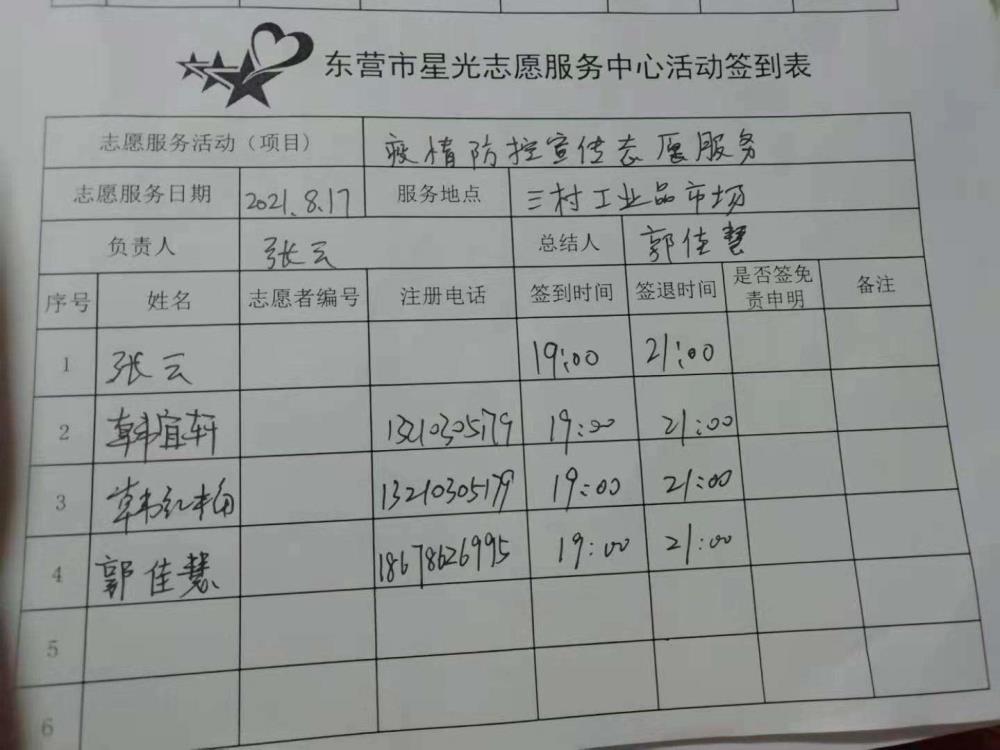 东营市星光志愿服务中心活动签到表
志愿服务活动（项目） 疫情防控宣传志愿服务
志愿服务日期 2021.8.17 服务地点 三村工业品市场
负责人 张云 总结人 郭佳慧
序号 姓名 志愿者编号 注册电话 签到时间 签退时间 是否签免责申明 备注
1 张云 19:00 21:00
2 韩宜轩 13210305179 19:00 21:00
3 韩红梅 13210305179 19:00 21:00
4 郭佳慧 18678626995 19:00 21:00
5
6